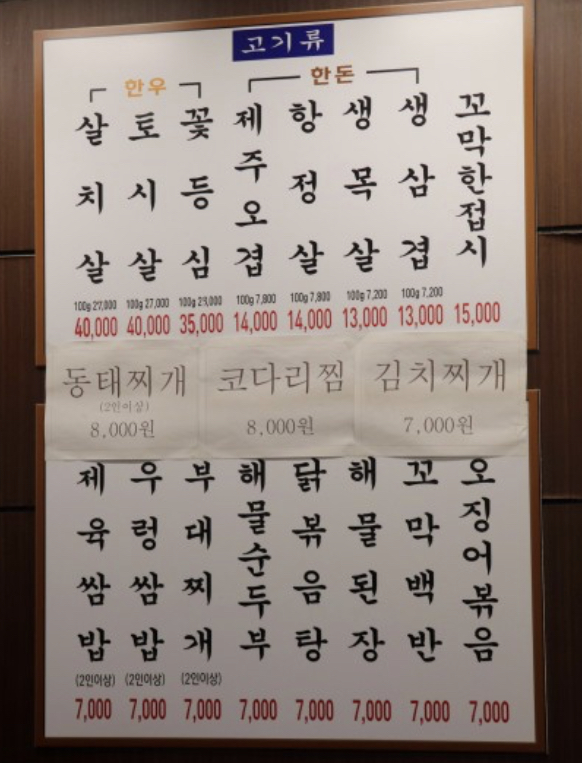 고기류
한우
한돈
살치살
토시살
꽃등심
제주오겹
항정살
생목살
생삼겹
꼬막한접시
100g 27,000
100g 27,000
100g 7,800
100g 7,800
100g 7,200
100g 7,200
40,000
40,000
35,000
14,000
14,000
13,000
13,000
15,000
동태찌개
(2인이상)
8,000원
코다리찜
8,000원
김치찌개
7,000원
제육쌈밥
우렁쌈밥
부대찌개
해물순두부
닭볶음탕
해물된장
꼬막백반
오징어볶음
(2인이상)
(2인이상)
(2인이상)
7,000
7,000
7,000
7,000
7,000
7,000
7,000
7,000